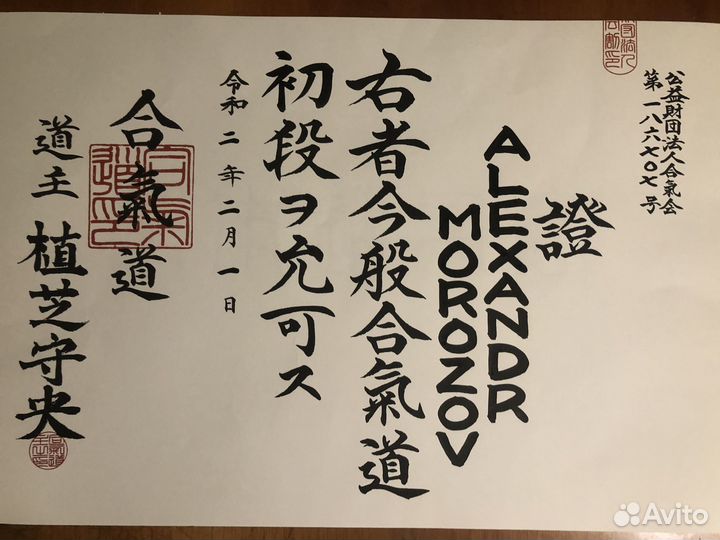 公益財団法人合氣会
第一八六七〇七号
證
ALEXANDR
MOROZOV
右者今般合氣道
初段ヲ允可ス
令和二年二月一日
合氣道
道主 植芝守央
Avito